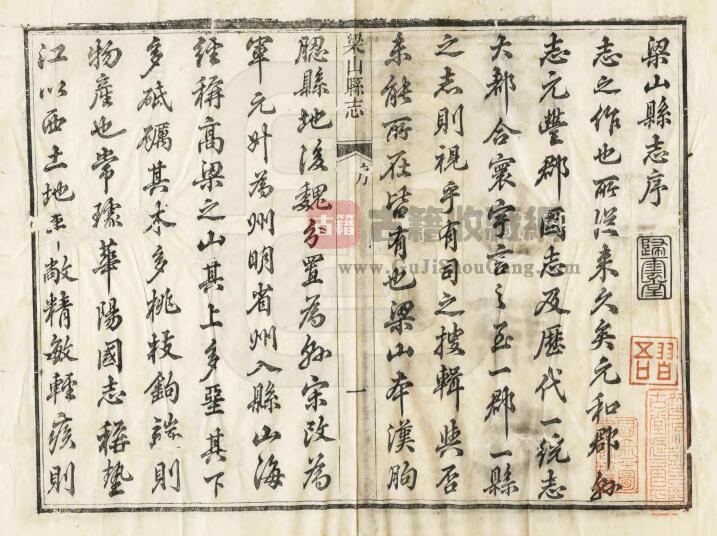 梁山縣志序
志之作也所從來久矣元和郡縣
志元豐郡國志及歷代一統志
大都合寰宇言之至一郡一縣
之志則視乎有司之搜輯與否
未能所在皆有也梁山本漢朐
梁山縣志
序
一
䏰縣地後魏分置為縣宋改為
軍元升為州明省州入縣山海
經稱高梁之山其上多堊其下
多砥礪其木多桃枝鉤端則
物產也常璩華陽國志稱墊
江以西土地平敞精敏輕疾則
歸書堂
古籍
古籍收藏網
www.GuJiShouCang.com